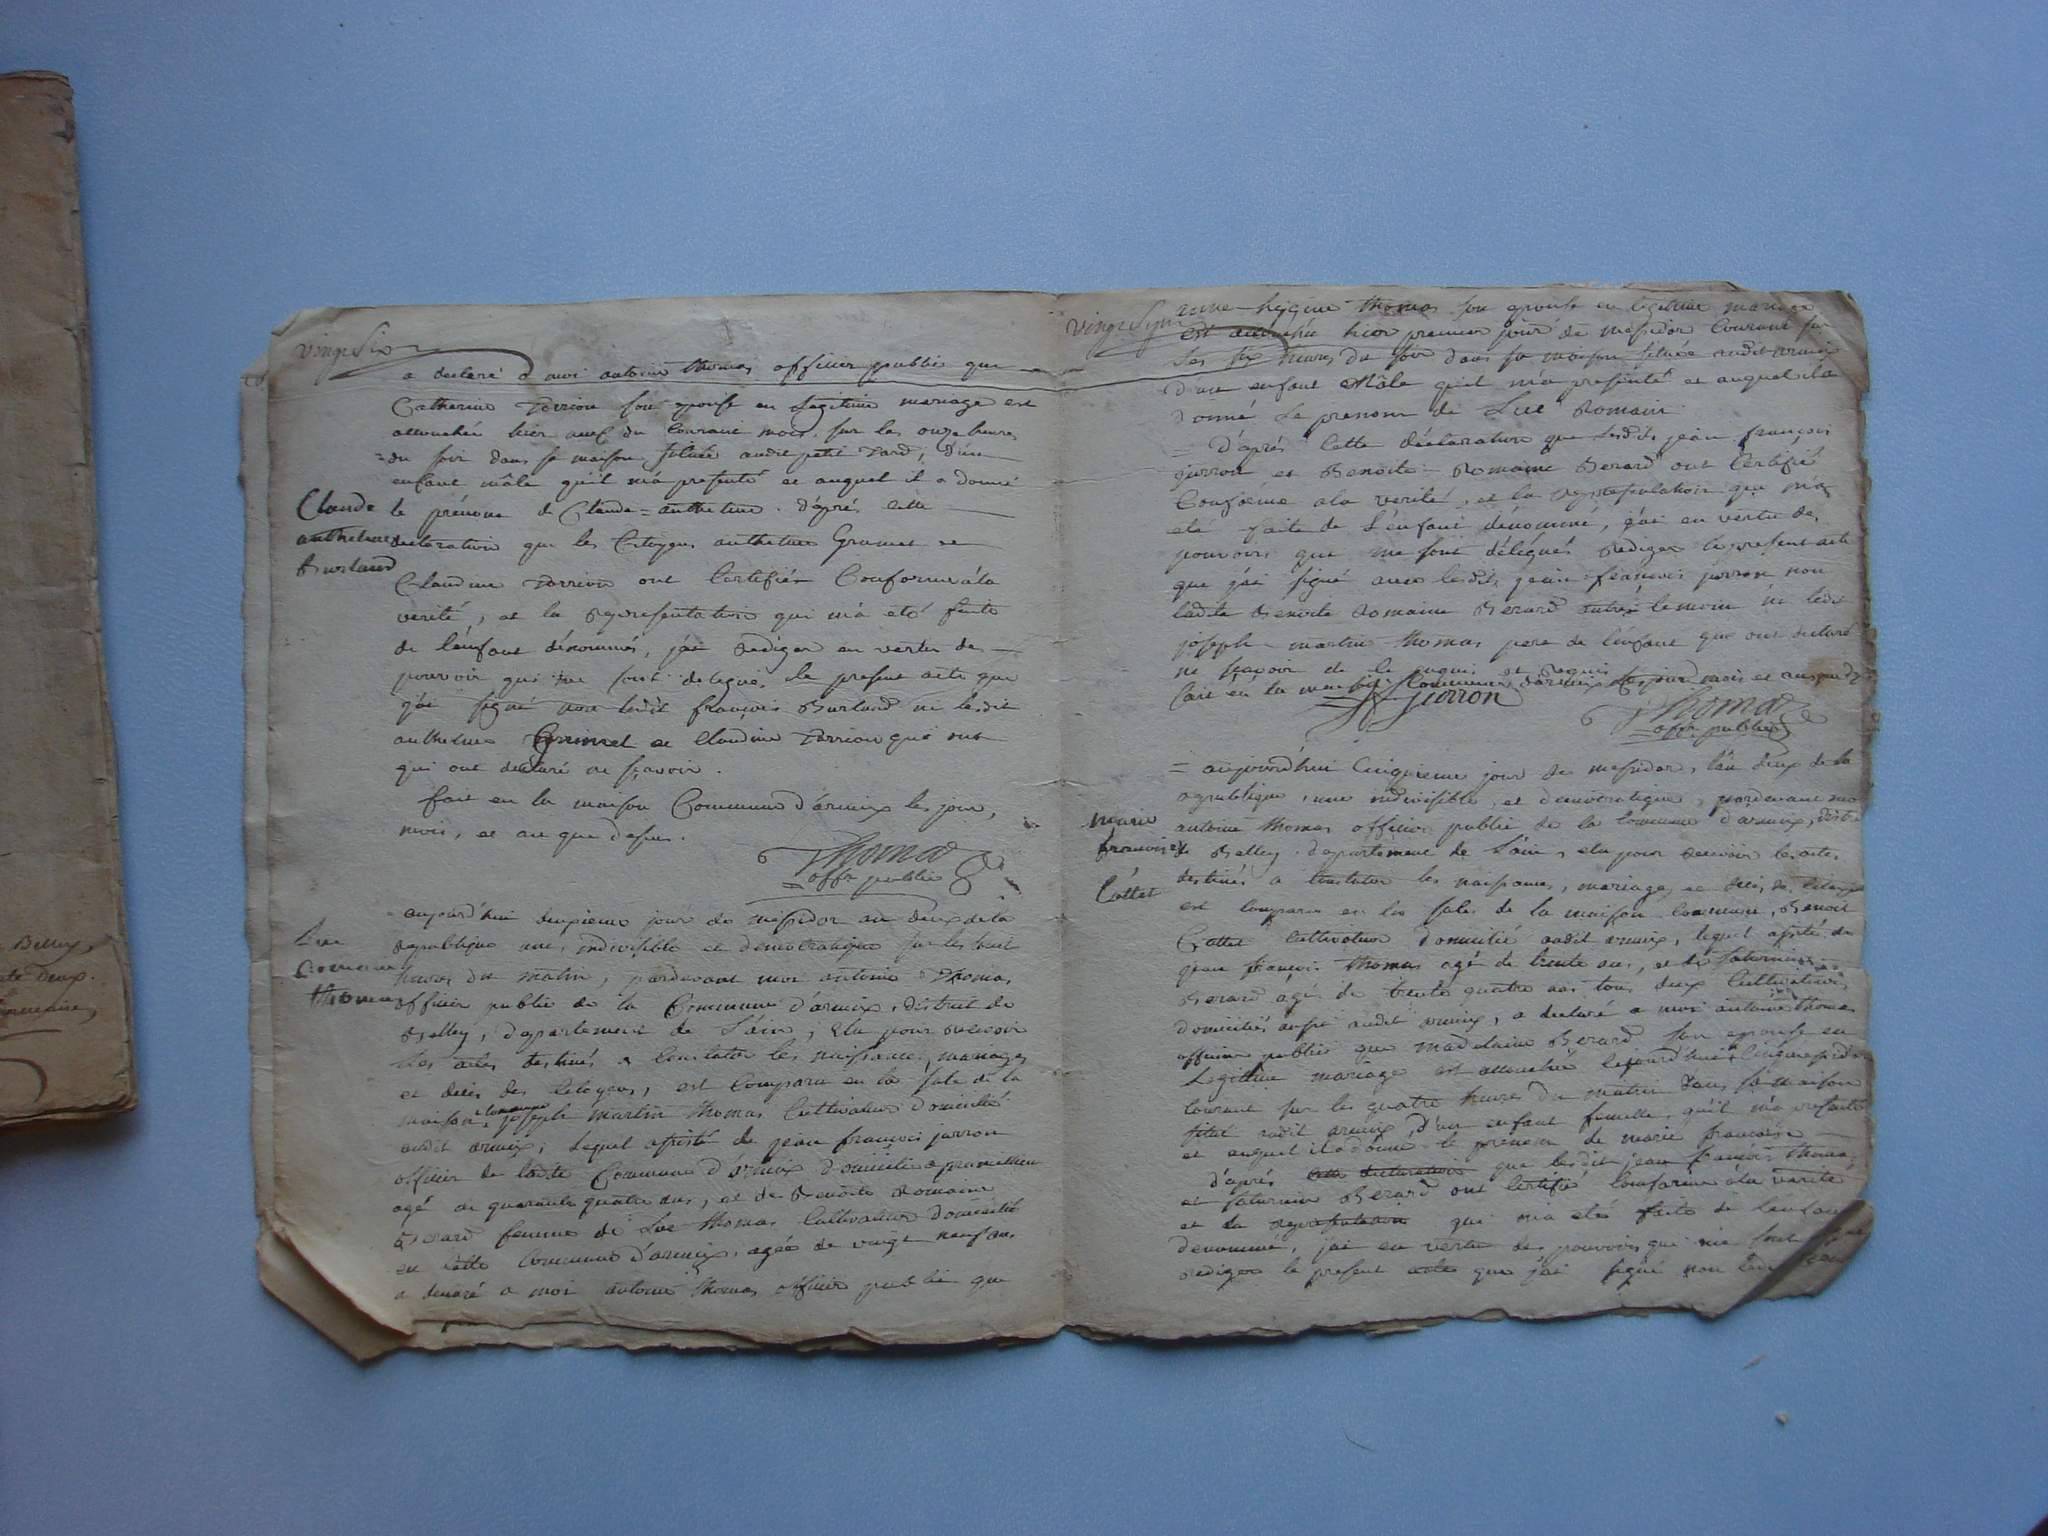 vingt six
a declaré a moi antoine thomas officier public que
Catherine perrion son epouse en Légitime mariage est
accouchée hier onze du courant mois, sur les onze heures
du soir dans sa maison située audit petit
enfant mâle qu'il m'a presenté et auquel il a donné
Claude
le prénom de Claude = anthelme. d'après cette
anthelme
declaration que les Citoyens anthelme Grumet et
Burland
Claudine perrion ont Certifiés Conforme à la
verité, et la representation qui m'a eté faite
de l'enfant dénommé, j'ai rédiger en vertu des
pouvoir qui me sont delegué, le present acte que
j'ai signé non ledit françois Burland ni lesdit
anthelme Grumet et Claudine perrion qui ont
qui ont declaré ne sçavoir.
fait en la maison Commune d'armix les jour,
mois, et an que dessus.
Thomas
offr public
aujourd'hui deuxieme jour de messidor an deux de la
Luc
republique une, indivisible et democratique sur les huit
Romain
heures du matin, pardevant moi antoine Thomas
thomas
officier public de la Commune d'armix, district de
Belley, departement de l'ain, elu pour recevoir
les actes destinés a Constater les naissances, mariages
et décés des Citoyens, est Comparu en la sale de la
maison commune joseph martin thomas Cultivateur domicilié
audit armix, lequel assisté de jean françois jurron
officier de ladite Commune d'armix domicilié a premillieu
agé de quarante quatre ans, et de Benoite Romaine
Berard femme de Luc thomas Cultivateur domicilié
en cette Commune d'armix, agée de vingt neuf ans,
a declaré a moi antoine thomas officier public que
vingt sept
anne higine thomas son epouse en legitime mariage
est accouchée hier premier jour de messidor Courant sur
les six heures du soir dans sa maison située audit armix
d'un enfant Mâle qu'il m'a presenté et auquel il a
donné le prenom de Luc Romain
= D'après Cette déclaration que lesdits jean françois
jurron et Benoite Romaine Berard ont Certifié
Conforme a la verité, et la representation qui m'a
eté faite de l'enfant dénommé, j'ai en vertu des
pouvoirs qui me sont délégués rediger le present acte
que j'ai signé avec ledit jean françois jurron non
ladite Benoite Romaine Berard autre temoin ni ledit
joseph martin thomas pere de l'enfant qui ont declaré
ne sçavoir de le enquis et requis
fait en la maison Commune d'armix les jour mois et an
jurron
Thomas
offr public
= aujourd'hui Cinquieme jour de messidor, l'an deux de la
republique, une indivisible, et democratique, pardevant moi
marie
antoine thomas officier public de la Commune d'armix, district
françoise
de Belley departement de l'ain, elu pour recevoir les actes
Cottet
destinés a Constater les naissances, mariages et décés des Citoyens
est Comparu en la sale de la maison Commune, Benoit
Cottet Cultivateur domicilié audit armix, lequel assisté de
jean françois thomas agé de trente ans, et de saturnin
Berard agé de trente quatre ans tous deux Cultivateurs
domiciliés aussi audit armix, a declaré a moi antoine thomas
officier public que madelaine Berard son epouse en
Legitime mariage est accouchée Cejourd'hui Cinq messidor
Courant sur les quatre heures du matin dans sa maison
situé audit armix d'un enfant femelle, qu'il m'a presenté
et auquel il a donné le prenom de marie françoise
d'après cette declaration que lesdit jean françois thomas
et saturnin Berard ont Certifié Conforme a la verité
et la representation qui m'a eté faite de l'enfant
denommé, j'ai en vertu des pouvoirs qui me sont
rediger le present acte que j'ai signé non
Belley,